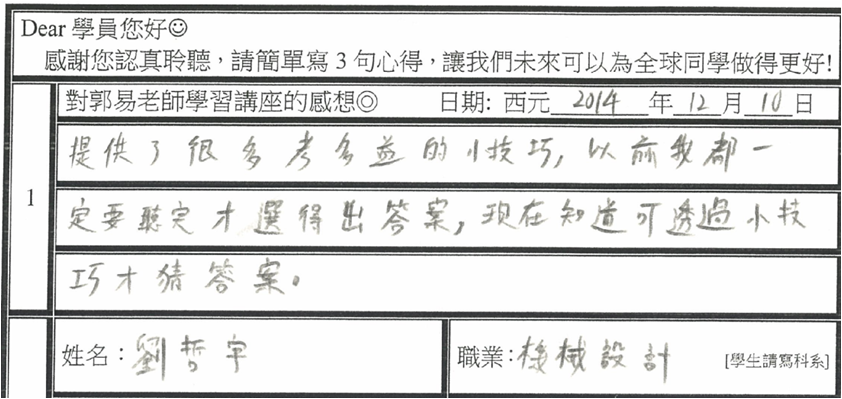 Dear 學員您好☺
感謝您認真聆聽，請簡單寫 3 句心得，讓我們未來可以為全球同學做得更好!
對郭易老師學習講座的感想◎ 日期: 西元 2014 年 12 月 10 日
1
提供了很多考多益的小技巧, 以前我都一
定要聽完才選得出答案, 現在知道可透過小技
巧才猜答案。
姓名：劉哲宇 職業：機械設計 [學生請寫科系]